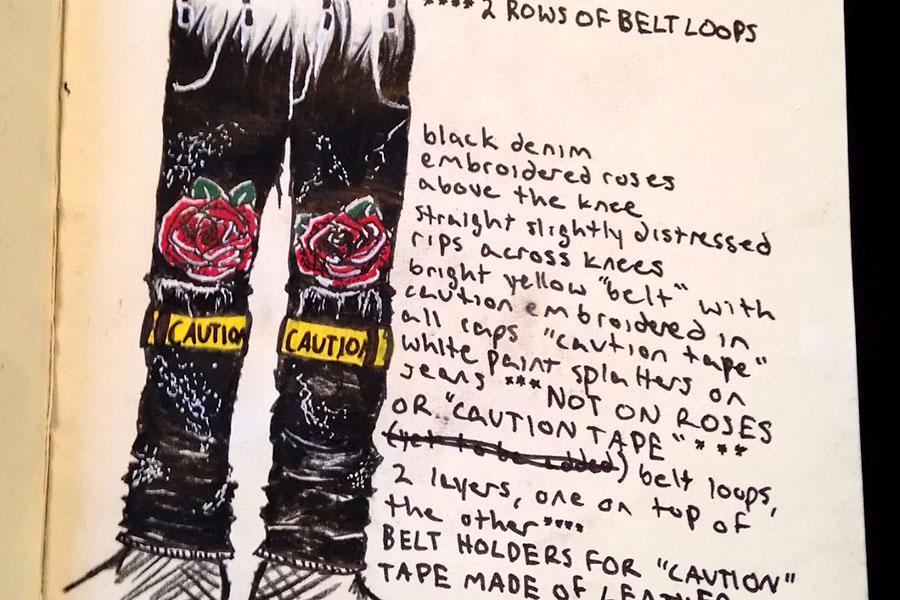 **** 2 ROWS OF BELT LOOPS
black denim
embroidered roses
above the knee
straight slightly distressed
rips across knees
bright yellow "belt" with
caution embroidered in
all caps "caution tape"
white paint splatters on
jeans *** NOT ON ROSES
OR "CAUTION TAPE" ***
(yet to be added) belt loops,
2 layers, one on top of
the other ****
BELT HOLDERS FOR "CAUTION"
TAPE MADE OF LEATHER
CAUTION
CAUTION